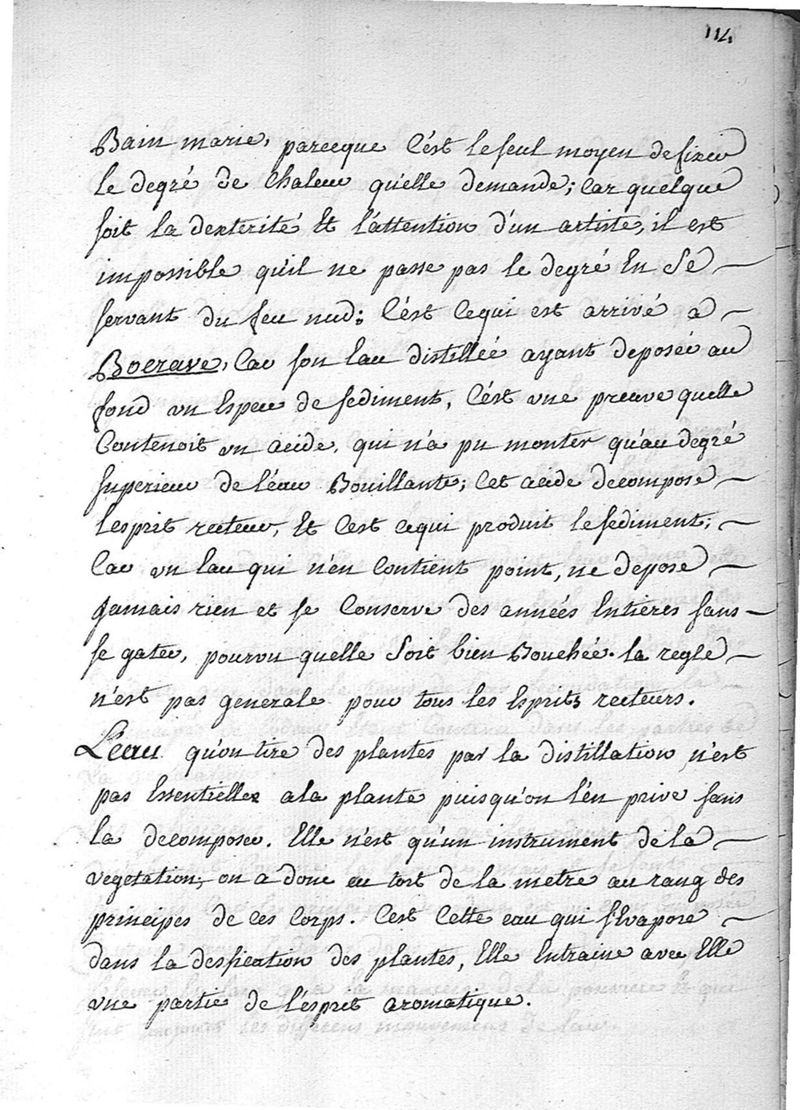 114
Bain marie, parceque C'est le seul moyen de fixer
le degré de Chaleur qu'elle demande; Car quelque
soit la dexterité Et l'attention d'un artiste, il est
impossible qu'il ne passe pas le degré En Se
servant du feu nud; C'est Cequi est arrivé a
Boerave, Car son Eau distillée ayant deposée au
fond un Espece de sediment, C'est une preuve quelle
Contenoit un acide, qui n'a pu monter qu'au degré
Superieur de l'éau Bouillante; Cet acide decompose
lesprit recteur, Et C'est cequi produit le sediment;
Car un Eau qui n'en Contient point, ne depose
Jamais rien et se Conserve des années Entières sans
se gater, pourvu quelle Soit bien Bouchée. la regle
n'est pas generale pour tous les Esprits recteurs.
L'éau qu'on tire des plantes par la distillation n'est
pas Essentielle a la plante puisqu'on l'én prive sans
la decomposer. Elle n'est qu'un instrument de la
vegetation; on a donc eu tort de la metre au rang des
principes de ces Corps. C'est Cette eau qui s'Evapore
dans la dessication des plantes, Elle Entraine avec Elle
une partie de l'ésprit aromatique.